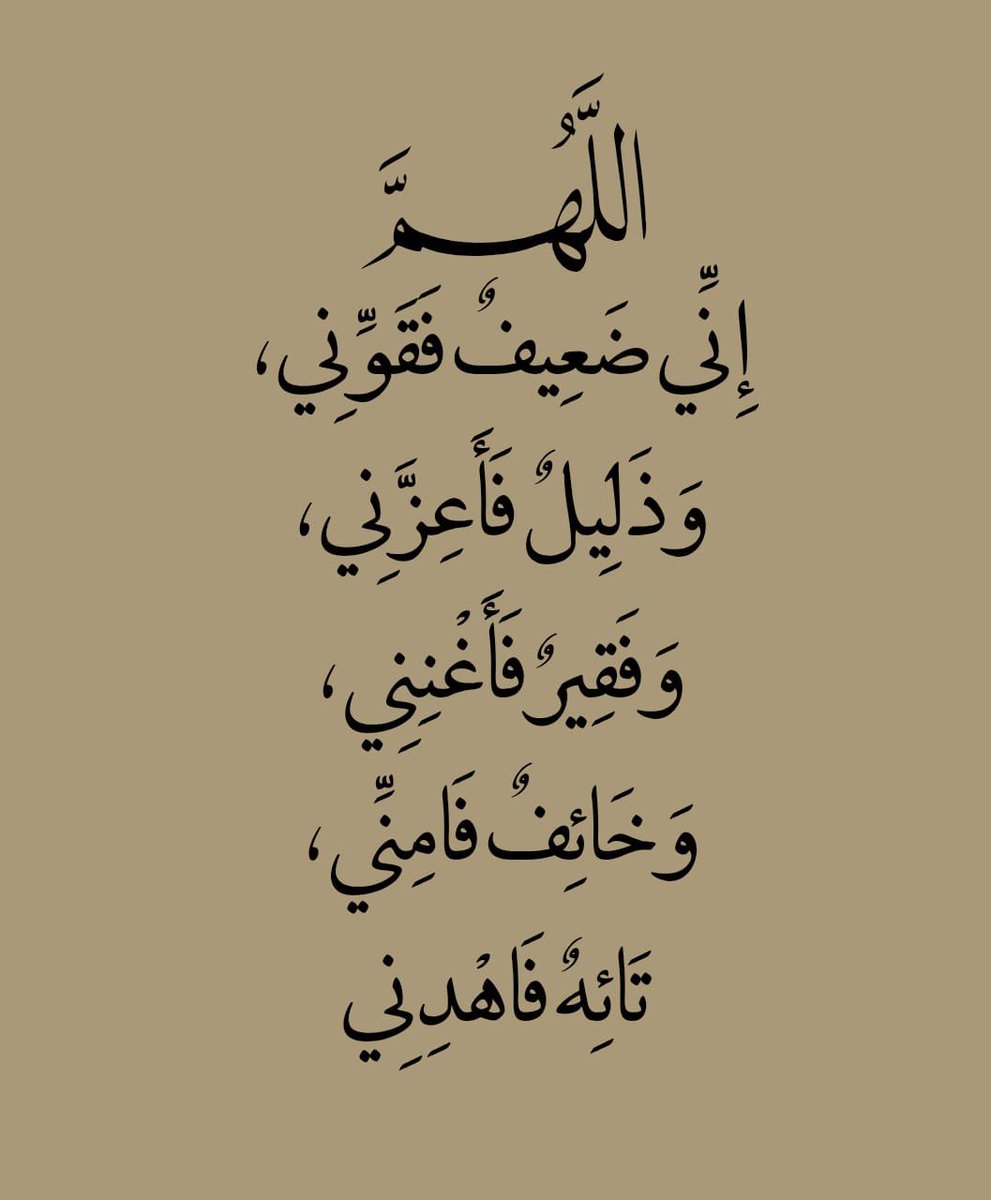 اللَّهُمَّ
إِنِّي ضَعِيفٌ فَقَوِّنِي،
وَذَلِيلٌ فَأَعِزَّنِي،
وَفَقِيرٌ فَأَغْنِنِي،
وَخَائِفٌ فَامِنِّي،
تَائِهٌ فَاهْدِنِي